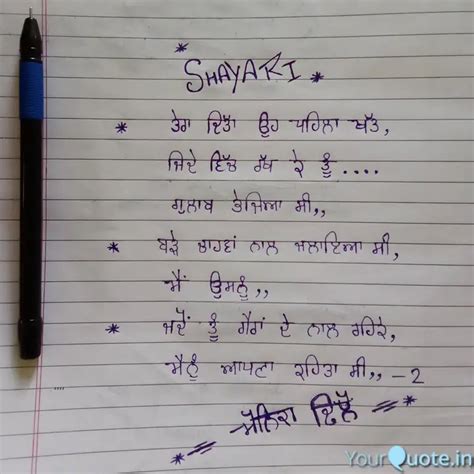 * SHAYARI *
* ਤੇਰਾ ਦਿੱਤਾ ਉਹ ਪਹਿਲਾ ਖੱਤ,
ਜਿਦੇ ਵਿੱਚ ਰੱਖ ਕੇ ਤੂੰ ....
ਗੁਲਾਬ ਭੇਜਿਆ ਸੀ,,
* ਬੜੇ ਚਾਹਵਾਂ ਨਾਲ ਜਲਾਇਆ ਸੀ,
ਮੈਂ ਉਸਨੂੰ,,
* ਜਦੋਂ ਤੂੰ ਗੈਰਾਂ ਦੇ ਨਾਲ ਰਹਿਕੇ,
ਮੈਨੂੰ ਆਪਣਾ ਕਹਿਤਾ ਸੀ,, -2
ਢਿੱਲੋਂ
YourQuote.in